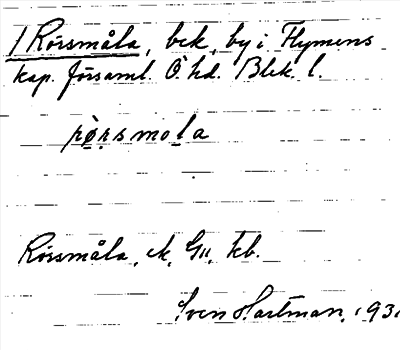 1 Rörsmåla, bek, by i Flymens
kap. församl. Ö. hd. Blek. l.
rø̀rsmola
Rörsmåla, ek, Gu, kb.
Sven Hartman, 193